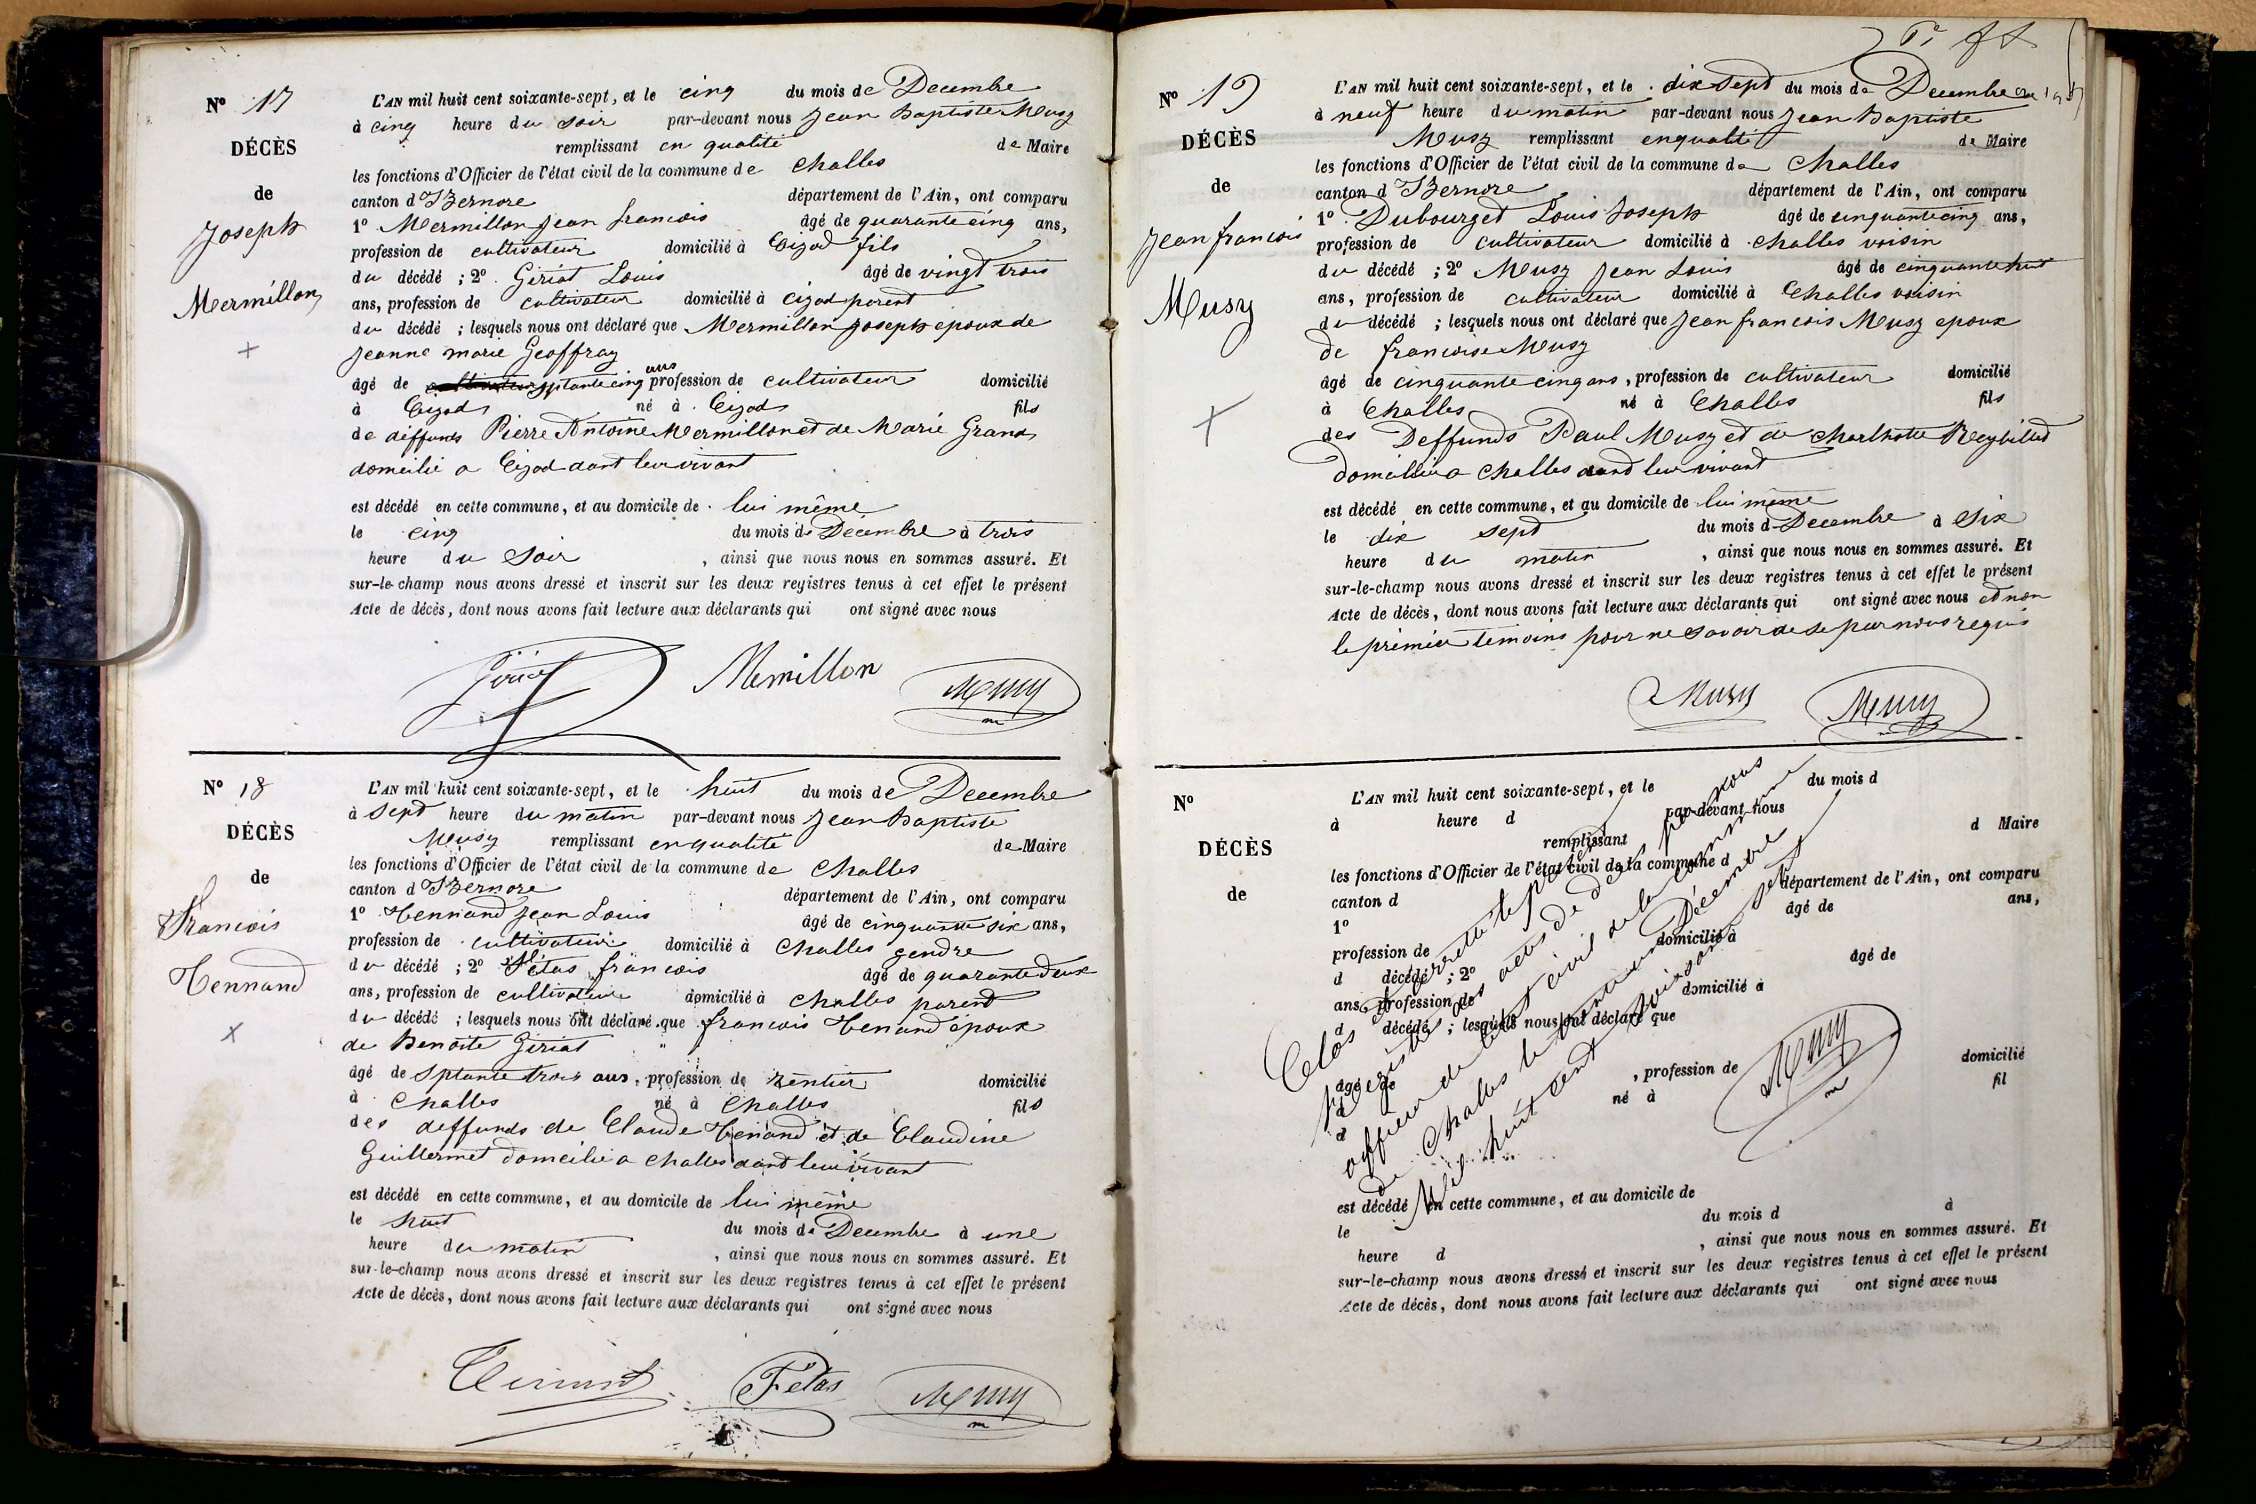 Nº 17
DÉCÈS
de
Joseph
Mermillon
L'AN mil huit cent soixante-sept, et le cinq du mois de Decembre
à cinq heure du soir par-devant nous Jean Baptiste Musy
remplissant en qualité de Maire
les fonctions d'Officier de l'état civil de la commune de Challes
canton d'Izernore département de l'Ain, ont comparu
1º Mermillon Jean francois âgé de quarante cinq ans,
profession de cultivateur domicilié à Cizod fils
du décédé ; 2º Giriat Louis âgé de vingt trois
ans, profession de cultivateur domicilié à Cizod parent
du décédé ; lesquels nous ont déclaré que Mermillon Joseph epoux de
Jeanne marie Geoffray
âgé de septante cinq ans profession de cultivateur domicilié
à Cizod né à Cizod fils
de deffunts Pierre Antoine Mermillon et de Marie Grand
domcilié a Cizod dant leur vivant
est décédé en cette commune, et au domicile de lui même
le cinq du mois de Décembre à trois
heure du soir , ainsi que nous nous en sommes assuré. Et
sur-le-champ nous avons dressé et inscrit sur les deux registres tenus à cet effet le présent
Acte de décès, dont nous avons fait lecture aux déclarants qui ont signé avec nous
Memillon Musy
Nº 18
DÉCÈS
de
Francois
Tennand
L'AN mil huit cent soixante-sept, et le huit du mois de Decembre
à sept heure du matin par-devant nous Jean Baptiste
Musy remplissant en qualité de Maire
les fonctions d'Officier de l'état civil de la commune de Challes
canton d'Izernore département de l'Ain, ont comparu
1º Tennand Jean Louis âgé de cinquante six ans,
profession de cultivateur domicilié à Challes gendre
du décédé ; 2º Fétas francois âgé de quarante deux
ans, profession de cultivateur domicilié à Challes parend
du décédé ; lesquels nous ont déclaré que francois Tenand époux
de Benoite Giriat
âgé de septante trois ans, profession de rentier domicilié
à Challes né à Challes fils
des deffunds de Claude Tenand et de Claudine
Guillermet domcilié a Challes dand leur vivant
est décédé en cette commune, et au domicile de lui même
le huit du mois de Decembre à une
heure du matin , ainsi que nous nous en sommes assuré. Et
sur-le-champ nous avons dressé et inscrit sur les deux registres tenus à cet effet le présent
Acte de décès, dont nous avons fait lecture aux déclarants qui ont signé avec nous
Fétas Musy
Nº 19
DÉCÈS
de
Jean francois
Musy
L'AN mil huit cent soixante-sept, et le dix sept du mois de Decembre
à neuf heure du matin par-devant nous Jean Baptiste
Musy remplissant en qualité de Maire
les fonctions d'Officier de l'état civil de la commune de Challes
canton d'Izernore département de l'Ain, ont comparu
1º Dubourget Louis Joseph âgé de cinquante cinq ans,
profession de cultivateur domicilié à Challes voisin
du décédé ; 2º Musy Jean Louis âgé de cinquante huit
ans, profession de cultivateur domicilié à Challes voisin
du décédé ; lesquels nous ont déclaré que Jean francois Musy epoux
de francoise Musy
âgé de cinquante cinq ans, profession de cultivateur domicilié
à Challes né à Challes fils
des Deffunds Paul Musy et de Charlhotte
domcilié a Challes dand leur vivant
est décédé en cette commune, et au domicile de lui même
le dix sept du mois de Decembre à Six
heure du matin , ainsi que nous nous en sommes assuré. Et
sur-le-champ nous avons dressé et inscrit sur les deux registres tenus à cet effet le présent
Acte de décès, dont nous avons fait lecture aux déclarants qui ont signé avec nous et non
le premier temoins pour ne savoir de se par nous requis
Musy Musy
Nº
DÉCÈS
de
L'AN mil huit cent soixante-sept, et le du mois d
à heure d par-devant nous
remplissant d Maire
les fonctions d'Officier de l'état civil de la commune d
canton d département de l'Ain, ont comparu
1º âgé de ans,
profession de domicilié à
d décédé ; 2º âgé de
ans, profession de domicilié à
d décédé ; lesquels nous ont déclaré que
âgé de , profession de domicilié
à né à fil
d
est décédé en cette commune, et au domicile de
le du mois d à
heure d , ainsi que nous nous en sommes assuré. Et
sur-le-champ nous avons dressé et inscrit sur les deux registres tenus à cet effet le présent
Acte de décès, dont nous avons fait lecture aux déclarants qui ont signé avec nous
Clos et arretté le présent
registre des actes de décès par nous
officier de l'etat civil de la commune
de Challes le trente un Décembre
Mil huit cent soixante sept
Musy